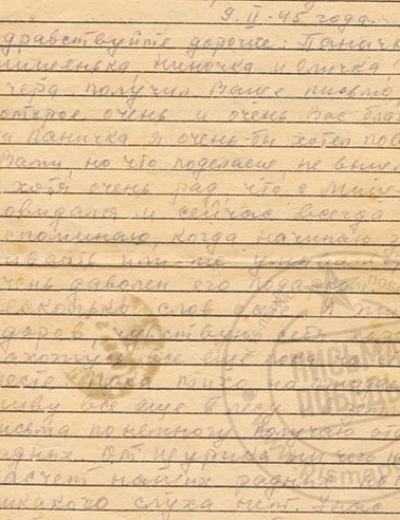 9. II - 45 года.
дравствуйте дорогие: Паничк
мишенька, Ниночка и
чера получил Ваше письмо,
которое очень и очень Вас бла
а Паничка я очень-бы хотел пов
Вами, но что поделаеш, не выш
хотя очень рад, что с Мише
овидался и сейчас всегда
споминаю, когда начинаю
или
чень даволен его подарко
есколько слов о
доров, чувствую себя
ахожусь все ещё пока на
есте. Пока тихо
живу все еще в лесу
исьма понемногу получаю от
адных. От
асчет наших радных
икакого слуха нет.
ПИСЬМА
ПОБЕДЫ
pisma